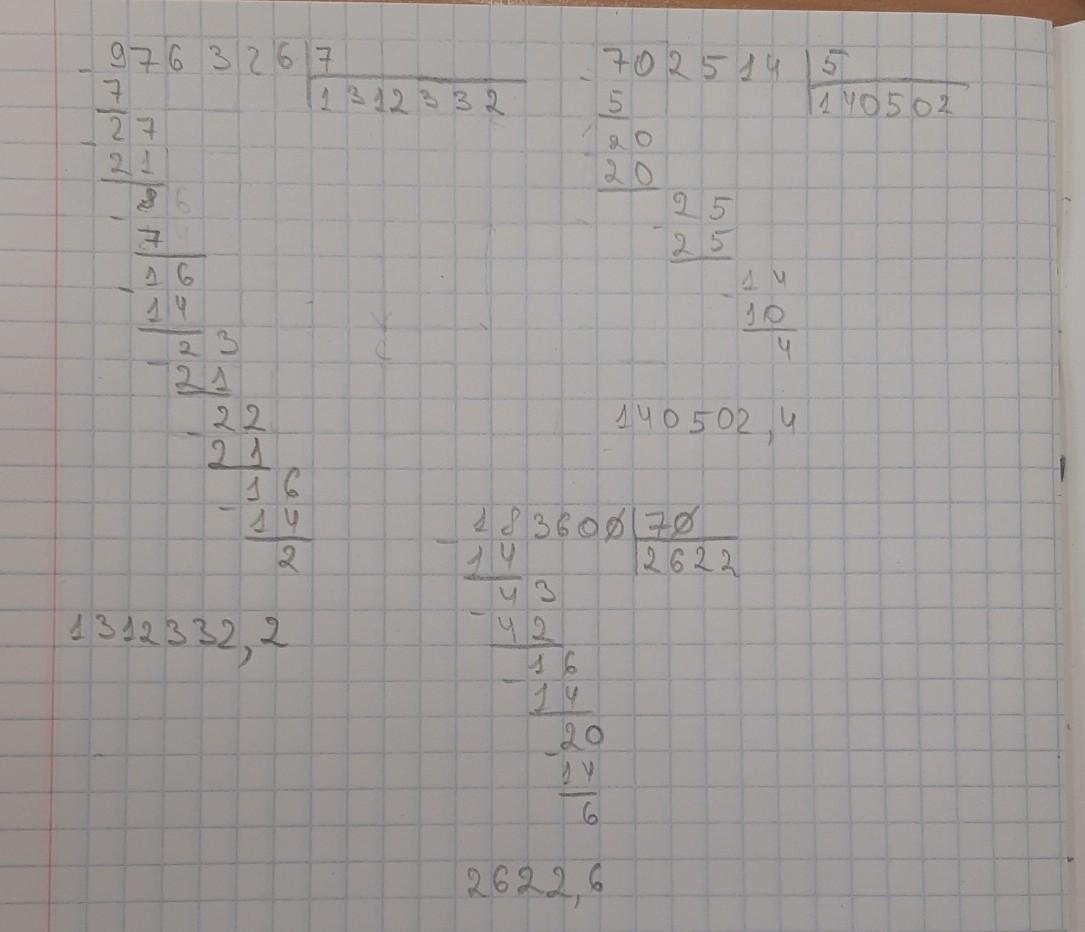 976326 7
- 7 1312332
27
- 21
8 6
- 7
16
- 14
23
- 21
22
- 21
16
- 14
2
1312332,2
702514 5
- 5 140502
20
- 20
25
- 25
14
- 10
4
140502,4
183600 70
- 14 2622
43
- 42
16
- 14
20
- 14
6
2622,6